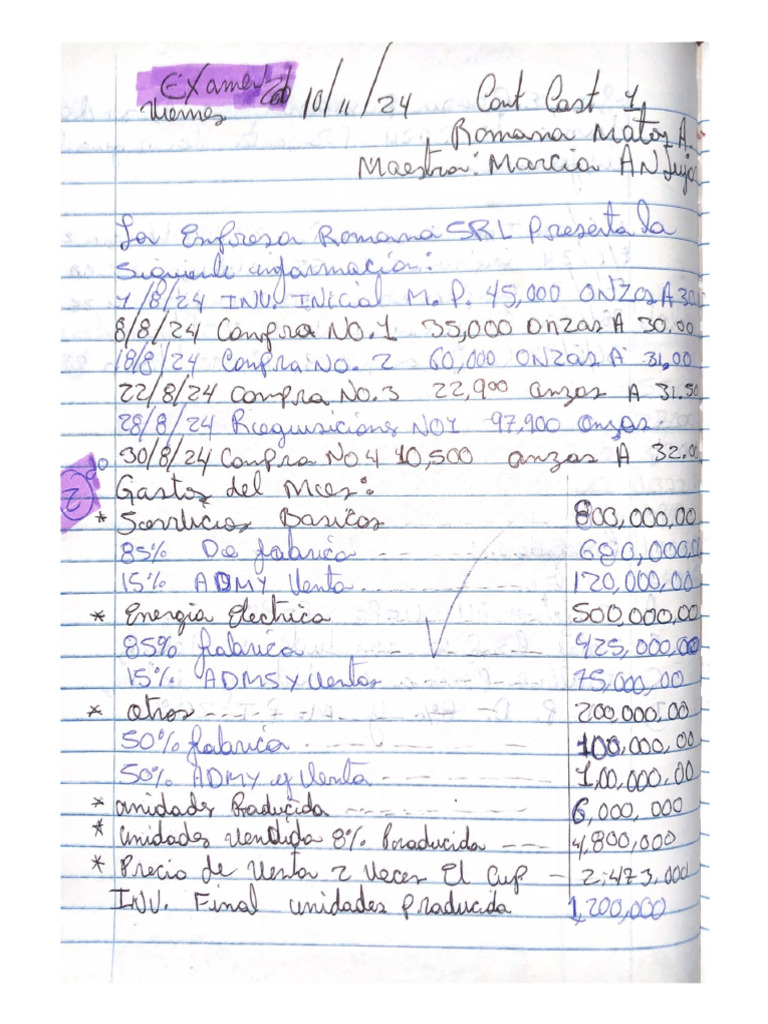 Examen 2do 10/11/24 Cont Cost 1
Viernes
Romana Matos A.
Maestra: Marcia ANduja
La Empresa Romana SRL Presenta la
Siguiente información:
1/8/24 INV. INicial M.P. 45,000 ONZas A 30.
8/8/24 Compra NO.1 35,000 onzas A 30.00
18/8/24 Compra No. 2 60,000 ONZas A 31,00
22/8/24 Compra No.3 22,900 onzas A 31.50
28/8/24 Requisicions NO1 97,900 onzas
30/8/24 Compra No.4 10,500 onzas A 32.00
2do Gastos del Mes:
* Servicios Basicos 800,000,00
85% De fabrica --- 680,000,00
15% ADM y Venta --- 120,000,00
* Energia Electrica 500,000,00
85% fabrica --- 425,000,00
15% ADMS y Ventas --- 75,000,00
* otros --- 200,000,00
50% fabrica --- 100,000,00
50% ADMY y Venta --- 1,00,000,00
* unidades Producida --- 6,000,000
* unidades vendida 8% Producida --- 4,800,000
* Precio de Venta 2 Veces El Cup - 2:473,000
INV. Final unidades producida 1,200,000